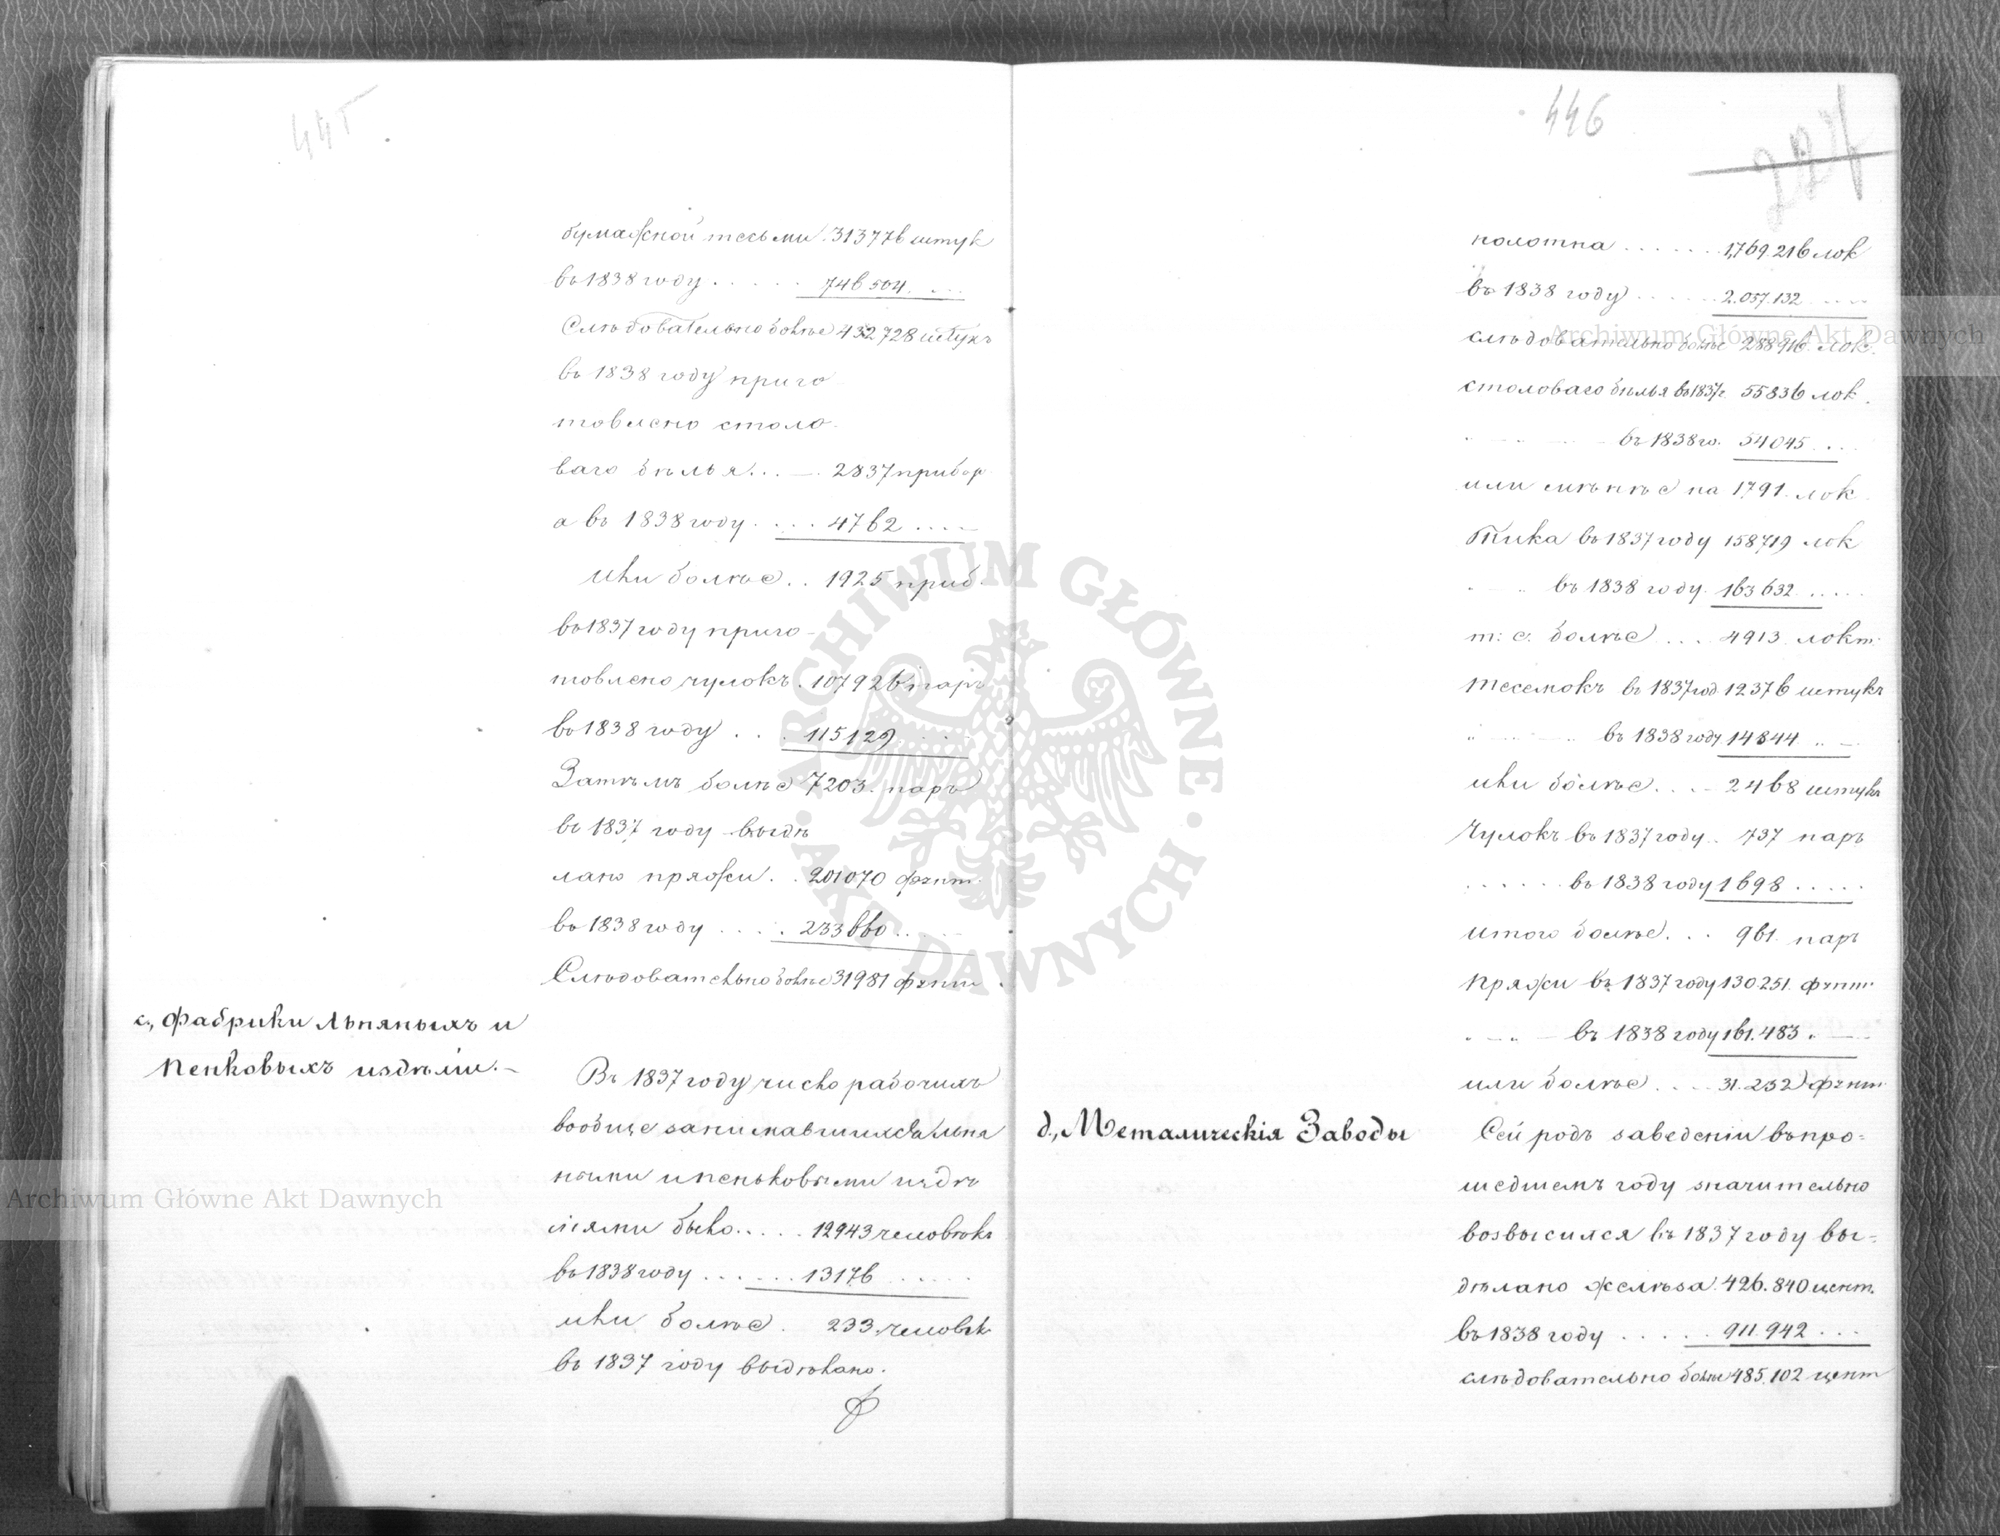 445
бумажной тесьми. 313776 штук
въ 1838 году . . . . . 746504. . . .
Слѣдовательно болѣе 432728 штукъ
въ 1838 году приго
товлено столо
ваго бѣлья. . — . 2837 прибор
а въ 1838 году . . . . 4762 . . . . —
или болѣе . . 1925 приб.
въ 1837 году приго-
товлено чулокъ . 107926 паръ
въ 1838 году . . . 115129
Затѣмъ болѣе 7203. паръ
въ 1837 году выдѣ
лано пряжи . . 201070 фунт.
въ 1838 году . . . . . 233660 . .
Слѣдовательно болѣе 31981 фунт.
с., Фабрики Льняныхъ и
Пенковыхъ издѣлiи. —
Въ 1837 году число рабочихъ
вообще занимавшихся льня
ными и пеньковыми издѣ
лiями было. . . . . 12943 человѣкъ
въ 1838 году . . . . . . 13176 . . . . . .
или болѣе . 233. человѣк
въ 1837 году выдѣлано.
446
224
полотна . . . . . . . 1,769.216 лок
въ 1838 году . . . . . . 2.057.132 . . . .
слѣдовательно болѣе 288916. лок.
столоваго бѣлья въ 1837г. 55836 лок.
" — " — — въ 1838 го. 54045 . . .
или менѣе на 1791. лок.
Тика въ 1837 году 158719 лок
" — " въ 1838 году 163632 . . . . .
т: е. болѣе . . . 4913 локт.
Тесемокъ въ 1837 год 12376 штукъ
" — — " въ 1838 году 14844 " —
или болѣе. . . — 2468 штукъ
Чулокъ въ 1837 году . . 737 паръ
. . . . . . въ 1838 году 1698 . . . . .
итого болѣе. . . 961. паръ
Пряжи въ 1837 году 130.251. фунт.
" — " — въ 1838 году 161.483 " —
или болѣе . . — 31.232 фунт.
д., Металическiя Заводы
Сей родъ заведенiи въ про=
шедшемъ году значительно
возвысился въ 1837 году вы=
дѣлано желѣза. 426.840 цент.
въ 1838 году . . . . . 911.942 . . .
слѣдовательно болѣе 485.102 цент
Archiwum Główne Akt Dawnych
Archiwum Główne Akt Dawnych
ARCHIWUM GŁÓWNE · AKT DAWNYCH ·